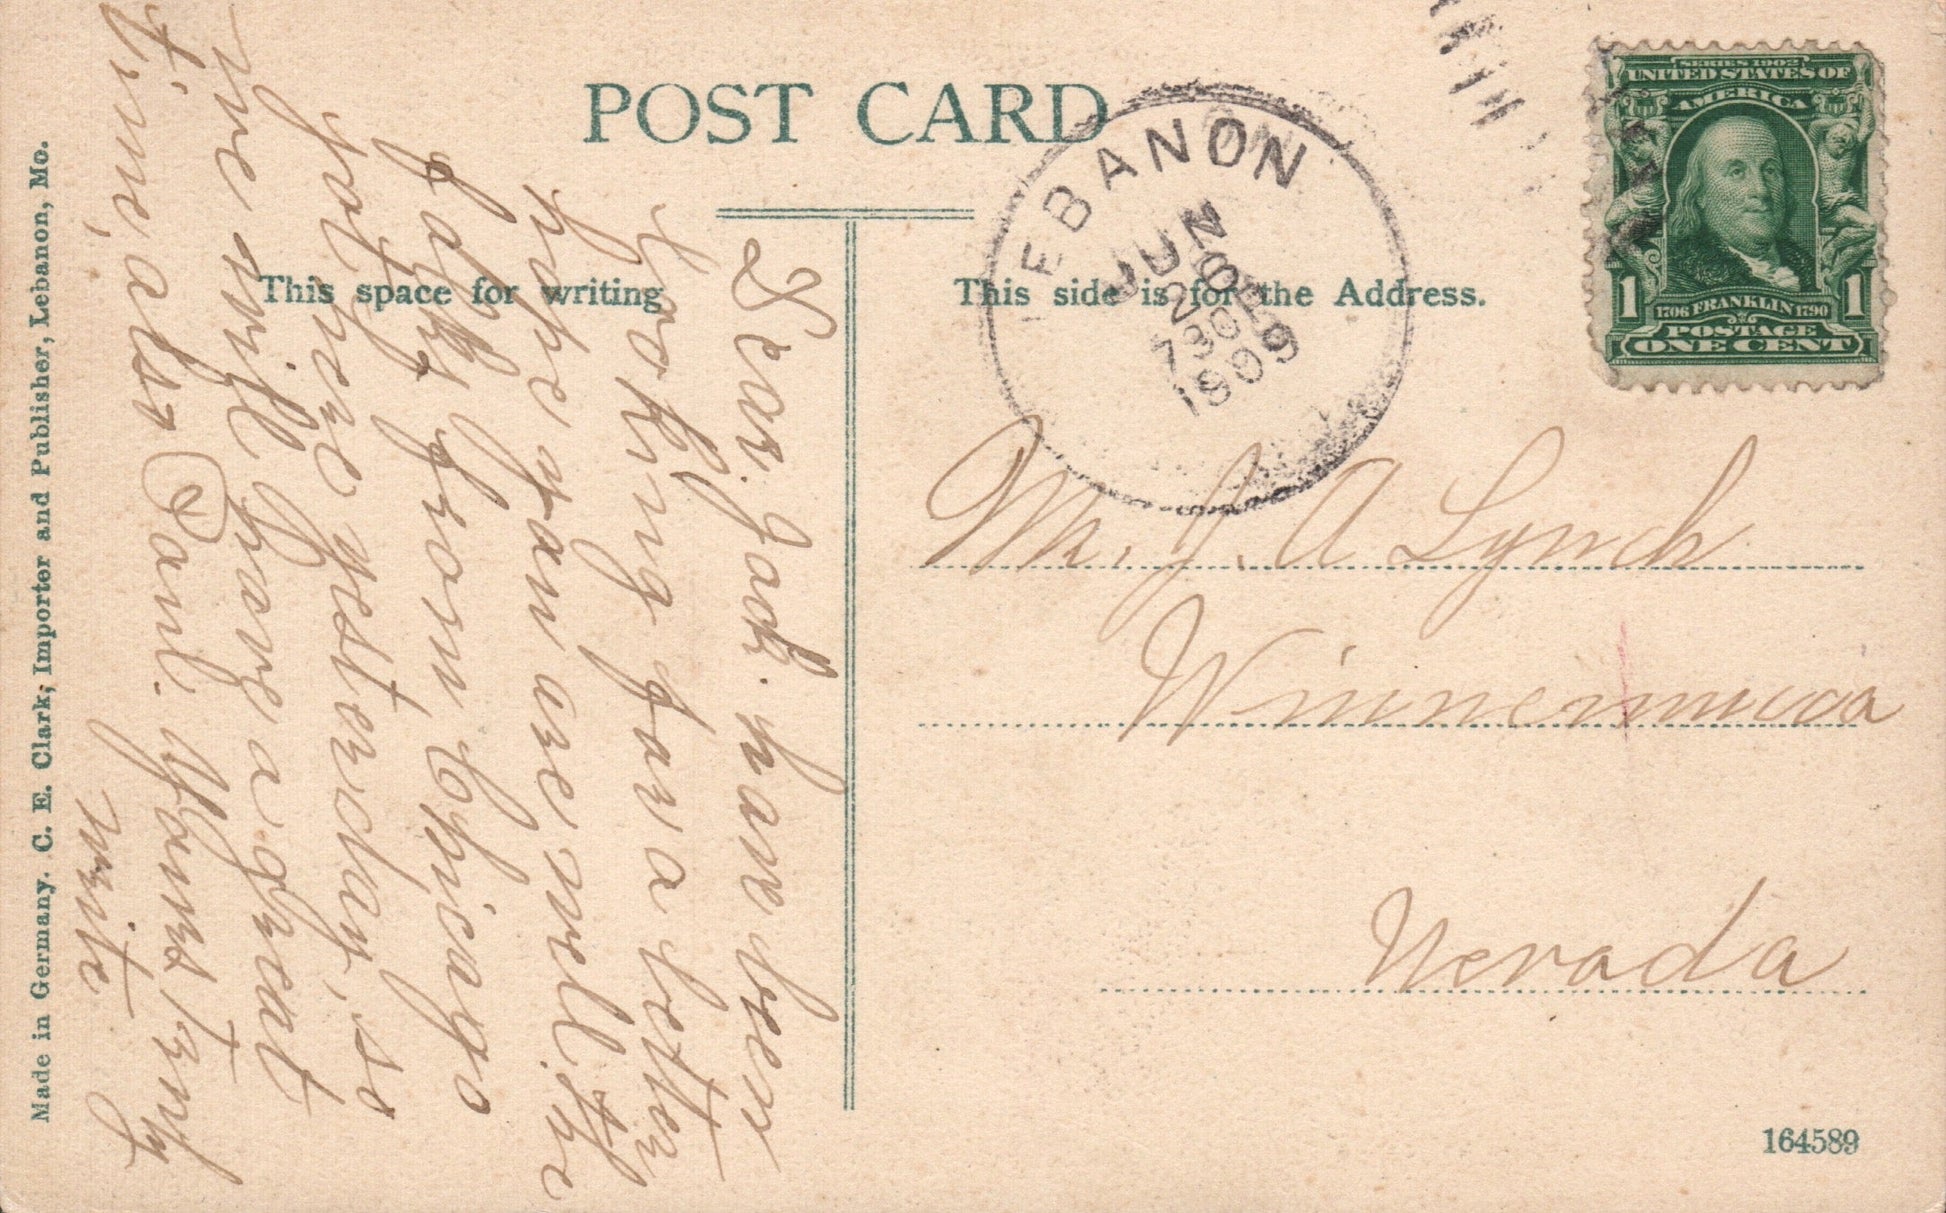 POST CARD
This space for writing
This side is for the Address.
Made in Germany. C. E. Clark, Importer and Publisher, Lebanon, Mo.
LEBANON
JUN
2
730
1909
SERIES 1902
UNITED STATES OF
AMERICA
1 1706 FRANKLIN 1790 1
POSTAGE
ONE CENT
Mr. J. A Lynch
Winnemucca
Nevada
164589
Dear Jack. have been
looking for a letter
hope you are well. the
folks from Chicago
got here yesterday, so
we will have a great
time, also Paul. Yours truly
write